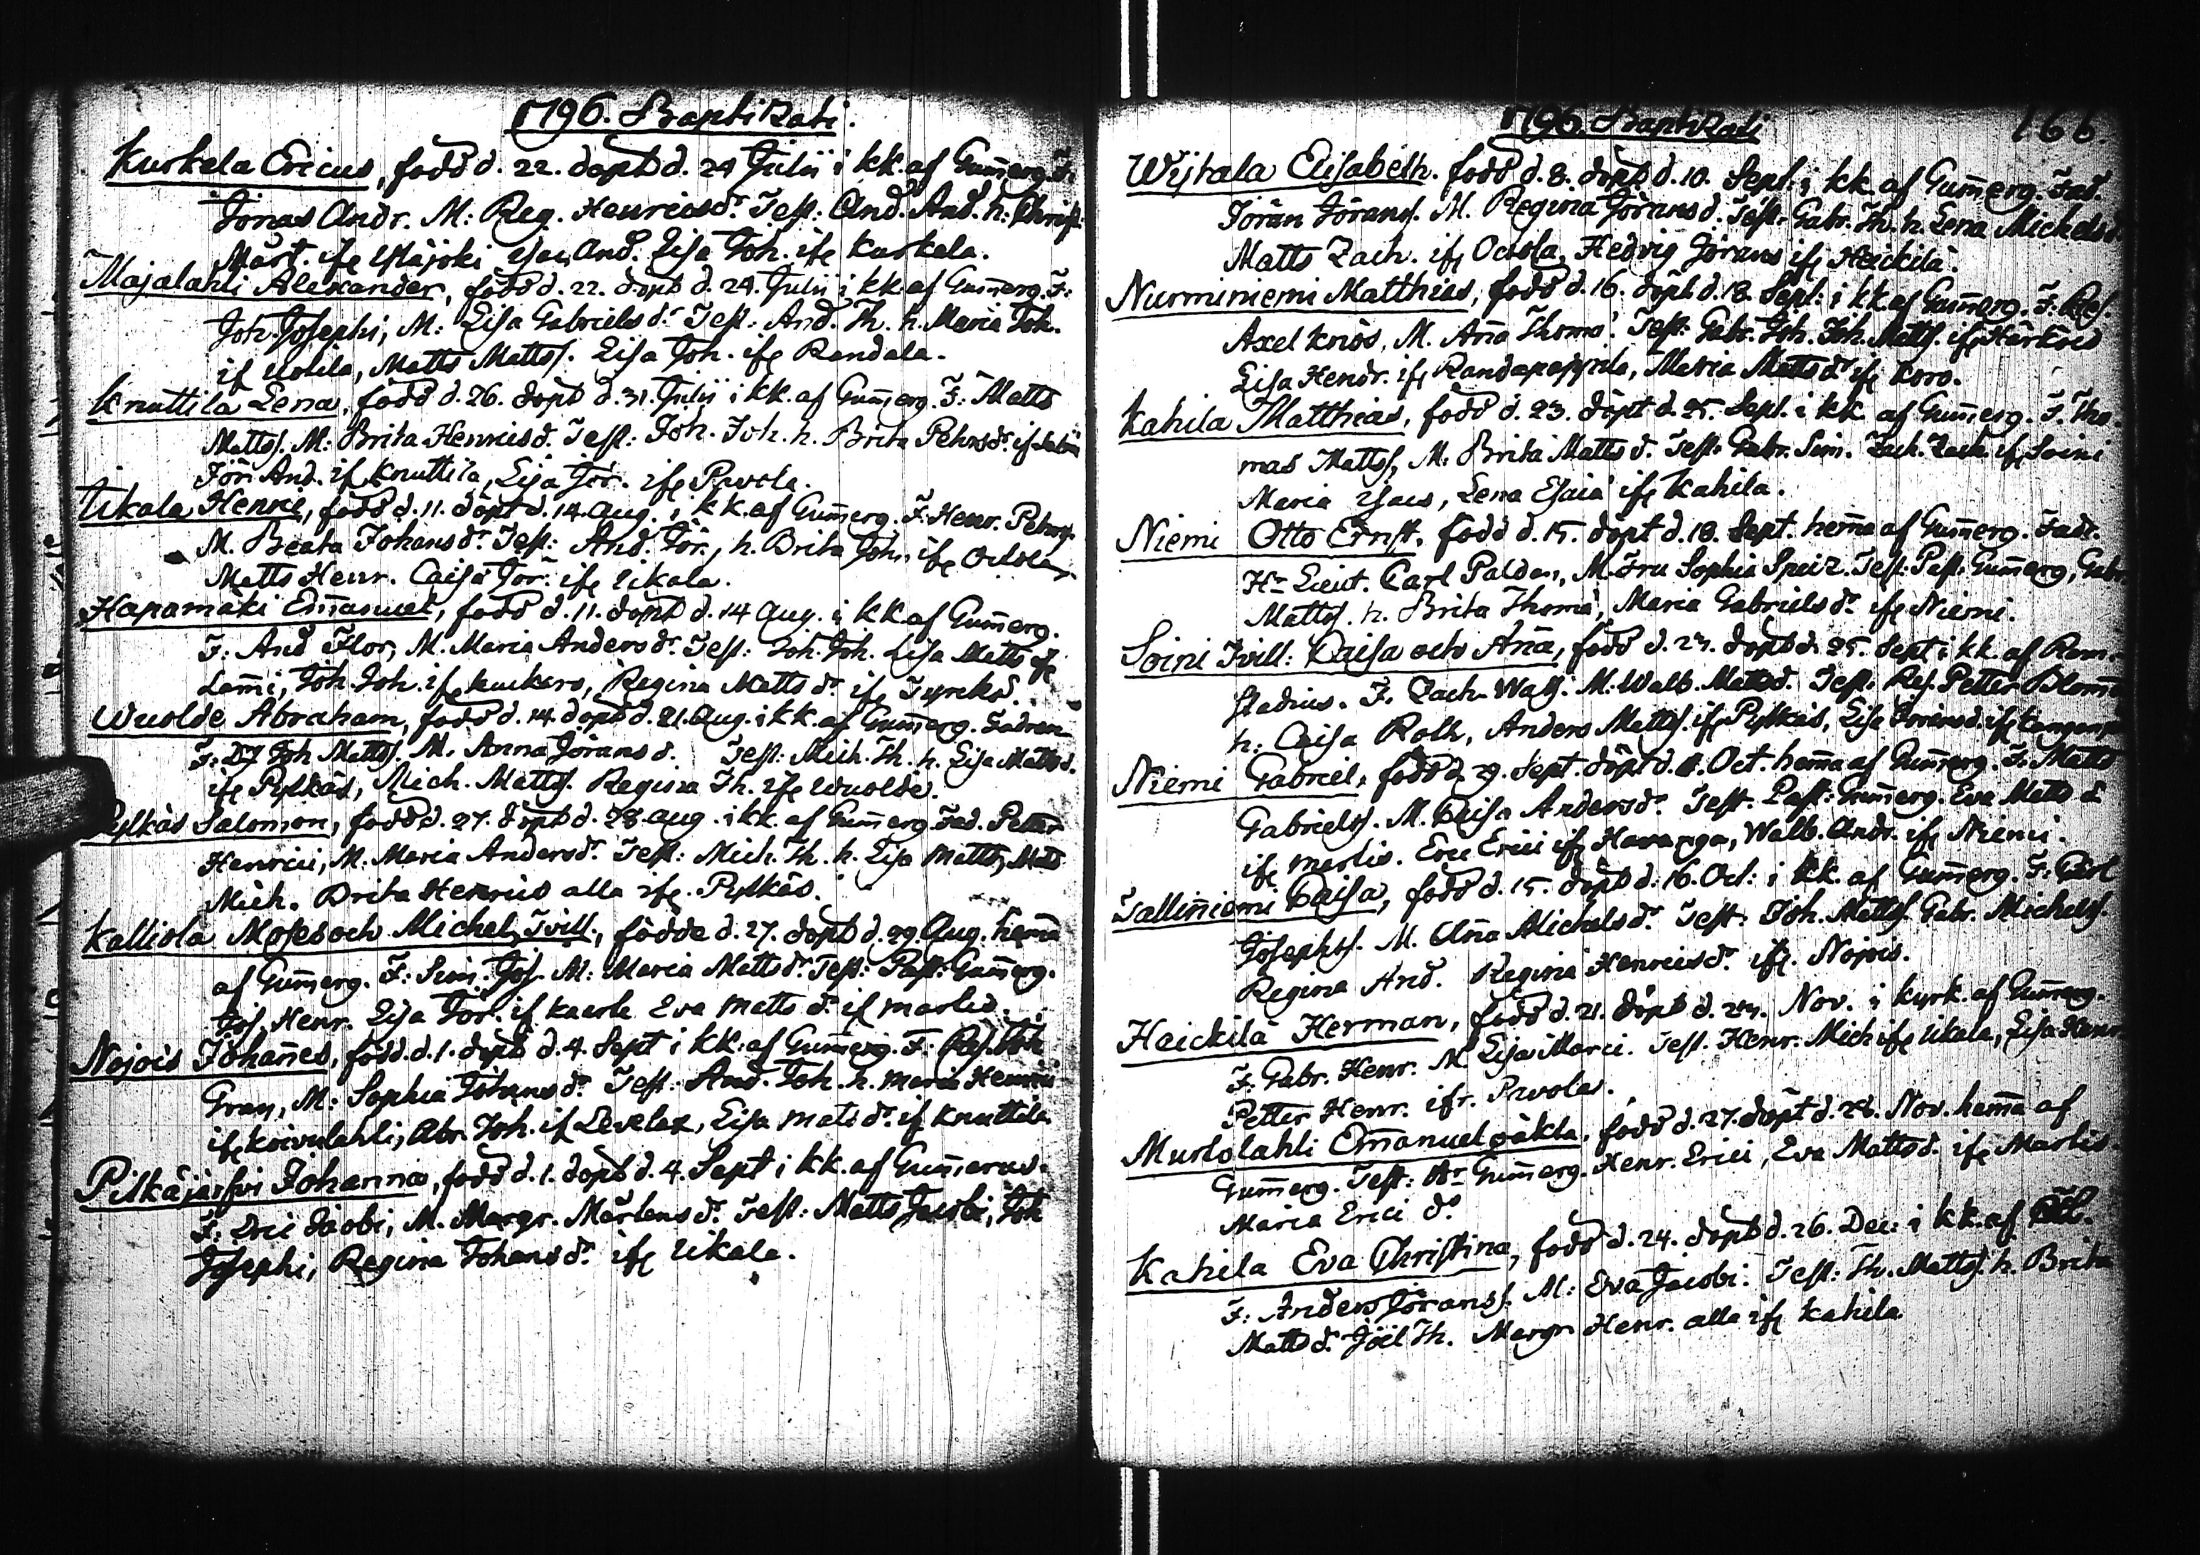 1796. Baptizati.
Kurkela Ericus, född d. 22. döpt d. 24 Julii i kk. af Gum̅erg. F:
Jonas Andr. M: Reg. Henricsdr. Test: And. And. h: Christ:
Mårt. ifr Ylistjoki And. Lisa Joh. ifr Kurkela.
Majalahti Alexander, född d. 22. döpt d. 24. Julii i kk. af Gum̅erg. F:
Joh. Josephi, M: Lisa Gabrielsdr. Test: And. Th. h. Maria Joh.
if Uotila, Matts Mattss. Lisa Joh. ifr Randala.
Knuttila Lena, född d. 26. döpt d. 31. Julii i kk. af Gum̅erg. F: Matts
Mattss. M: Brita Henricsd. Test: Joh. Joh. h. Brita Pehrsdr. if
Jör. And. if Knuttila, Lisa Jör. ifr Pavola.
Ukala Henric, född d. 11. döpt d. 14. Aug. i kk. af Gum̅erg. F: Henr. Pehrss.
M. Beata Johansdr. Test: And. Jör., h. Brita Joh. ifr Octola,
Matts Henr. Caisa Jör. ifr Ukala.
Hapamäki Em̅anuel, född d. 11. döpt d. 14 Aug. i kk. af Gum̅erg.
F: And Flor, M. Maria Andersdr. Test: Joh. Joh. Lisa Matts ifr
Lam̅i, Joh. Joh. if Kuckaro, Regina Mattsdr. ifr
Wuolde Abraham, född d. 14. döpt d. 21. Aug. i kk. af Gum̅erg. Fadren
F: Joh Mattss. M. Anna Jöransd. Test: Mich. Th. h. Lisa Mattsd.
ifr Pylkäs, Mich. Mattss. Regina Th. ifr Wuolde.
Pylkäs Salomon, född d. 27. döpt d. 28. aug. i kk. af Gum̅erg. Fad. Petter
Henrici, M. Maria Andersdr. Test: Mich. Th. h. Lisa Matts, Matts
Mich. Brita Henrics alla ifr Pylkäs.
Kalliola Moses och Michel, Tvill., födde d. 27. döpt d. 29. Aug. hem̅a
af Gum̅erg. F: Sim. Jos. M: Maria Mattsdr. Test: Past: Gum̅erg.
Jos. Henr. Lisa Jör. if Kaarle Eva Mattsdr. if Marlis.
Nojois Johan̅es, född. d. 1. döpt d. 4. Sept i kk. af Gum̅erg. F: Res. Joh
Gran, M: Sophia Jöransdr. Test: And. Joh. h. Maria Henrici
ifr Koivulahti, Abr. Joh. if Levelax, Lisa Matsdr. if Knuttila
Pitkäjärfvi Johanna, född d. 1. döpt d. 4. Sept i kk. af Gum̅erus.
F: Eric Jacobi, M. Margr. Mårtensdr. Test: Matts Jacobi, Joh
Josephi, Regina Johansdr. ifr Ukala.
1796 Baptizati
166.
Wijtala Elisabeth. född d. 8. döpt d. 10. Sept. i kk. af Gum̅erg. Fad.
Jöran Jöranss. M. Regina Jöransd. Test: Gabr. Th. h. Lena Mickelsd
Matts Zach. ifr Octola, Hedvig Jörans ifr Heickilä.
Nurminiemi Matthias, född d. 16. döpt d. 18. Sept. i kk. af Gum̅erg. F: Res.
Axel Knös, M. An̅a Thomæ. Test: Gabr. Joh. Joh. Mattss. ifr
Lisa Hendr. ifr Maria Mattsdr. ifr Koro.
Kahila Matthias, född d. 23. döpt d. 25. Sept. i kk. af Gum̅erg. F. Tho-
mas Mattss, M: Brita Mattsd. Test: Gabr. Sim. Zach. Zach. ifr Soini
Maria Isacs, Lena Esaiæ ifr Kahila.
Niemi Otto Ernst, född d. 15. döpt d. 18. Sept. hem̅a af Gum̅erg. Fadr.
Hr Lieut. Carl Paldan, M. Fru Sophia Speiz. Test. Past. Gum̅erg, Gabr
Mattss. h. Brita Thomæ, Maria Gabrielsdr. ifr Niemi.
Soini Tvill: Caisa och An̅a, född d. 23. döpt d. 25. Sept i kk. af
stadius. F. Zach. M: Walb. Mattsd. Test. Res. Petter Blom
h: Caisa Roth, Anders Mattss. ifr Pylkäs, Lisa Jöransd. ifr
Niemi Gabriel, född d. 29. Sept. döpt d. 1. Oct. hem̅a af Gum̅erg. F. Matts
Gabrielss. M. Caisa Andersdr. Test. Past: Gum̅erg. Eva Matts d
ifr Marlis. Eric Erici ifr Havanga, Walb. Andr. ifr Niemi.
Tallin̅iemi Caisa, född d. 15. döpt d. 16. Oct: i kk. af Gum̅erg. F: Carl
Josephss. M. An̅a Michelsdr. Test: Joh. Mattss. Gabr. Michelss.
Regina And. Regina Henricsdr. ifr. Nojois.
Haickilä Herman, född d. 21. döpt d. 24. Nov. i kyrk. af Gum̅erg.
F: Gabr. Henr. M Lisa Marci. Test. Henr. Mich ifr Ukala, Lisa Henr.
Petter Henr. ifr. Pavola.
Murtolahti Em̅anuel oäkta, född d. 27. döpt d. 28. Nov. hem̅a af
Gum̅erg. Test: Hr Gum̅erg. Henr. Erici, Eva Mattsd. ifr Marlis.
Maria Erici dr.
Kahila Eva Christina, född d. 24. döpt d. 26. Dec: i kk. af
F: Anders Jöranss. M: Eva Jacobi. Test: Th. Mattss. h. Brita
Mattsd. Joël Th. Margr Henr. alla ifr Kahila.